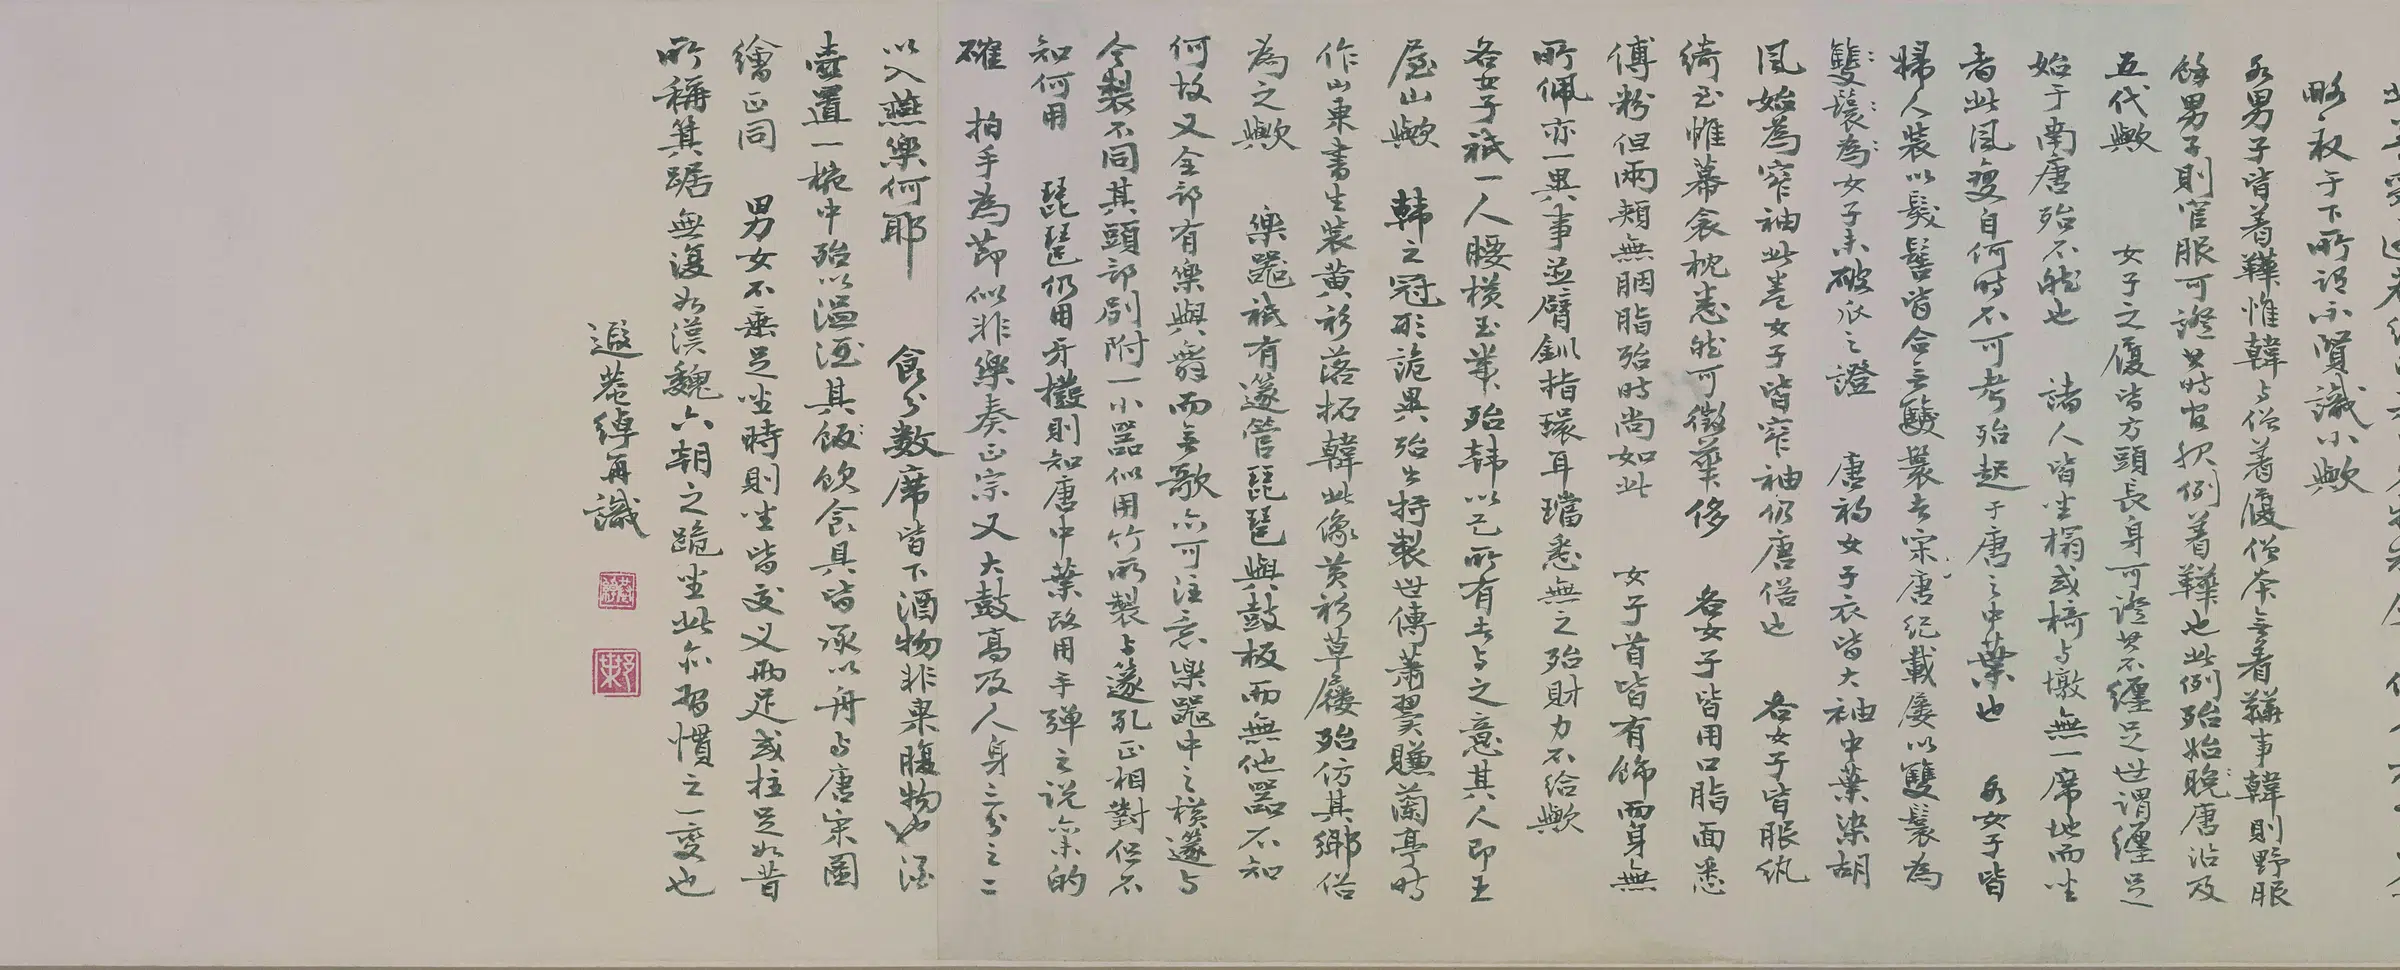 略取于下所謂不賢識小歟
各男子皆着鞾惟韓与僧着履僧亦無着鞾事韓則野服
餘男子則官服可證其時官服例着鞾也此例殆始晚唐沿及
五代歟　女子之履皆方頭長身可證其不纏足世謂纏足
始于南唐殆不然也　諸人皆坐榻或椅与墩無一席地而坐
者此風變自何時不可考殆起于唐之中葉也　各女子皆
婦人裝以髮髻皆合無雙鬟者宋唐紀載屢以雙鬟為
雙鬟為女子未破瓜之證　唐初女子衣皆大袖中葉染胡
風始為窄袖此卷女子皆窄袖仍唐俗也　各女子皆服紈
綺至惟幕衾枕悉然可徵華侈　各女子皆用口脂面悉
傅粉但兩頰無胭脂殆時尚如此　女子首皆有飾而身無
所佩亦一異事並臂釧指環耳璫悉無之殆財力不給歟
各女子衹一人腰橫玉帶殆韓以己所有者与之意其人即王
屋山歟　韓之冠形詭異殆生特製世傳蕭翼賺蘭亭時
作山東書生裝黃衫落拓韓此像黃衫草屨殆仿其鄉俗
為之歟　樂器衹有篴管琵琶與鼓板而無他器不知
何故又全部有樂與舞而無歌亦可注意樂器中之橫篴与
今製不同其頭部別附一小器似用竹所製与篴孔正相對但不
知何用　琵琶仍用牙撥則知唐中葉改用手彈之說未的
確　拍手為節似非樂奏正宗又大鼓高及人身三分之二
以入燕樂何耶　食分數席皆下酒物非果腹物也酒
壺置一椀中殆以溫酒其飯飲食具皆承以舟与唐宋圖
繪正同　男女不垂足坐時則坐皆交叉兩足或拄足如昔
所稱箕踞無復如漢魏六朝之跪坐此亦習慣之一變也
遐菴綽再識